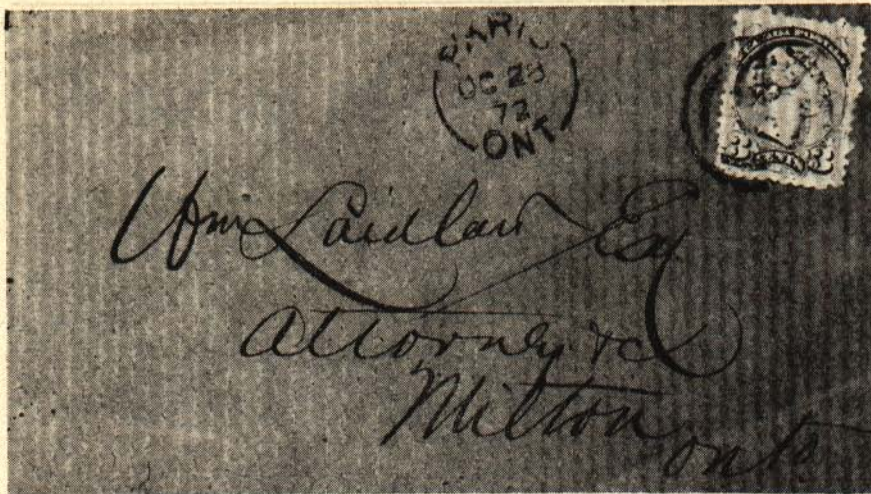 PARIS
OC 28
72
ONT
CANADA POSTAGE
3 CENTS 3
Wm Laidlaw Esq
Attorney &c
Milton
Ont